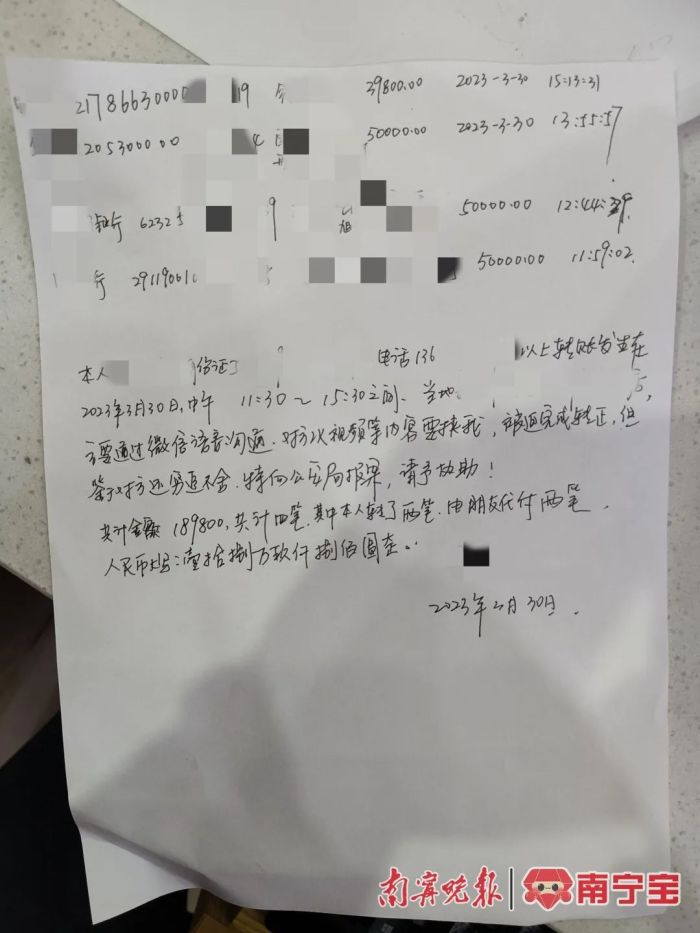 21786630000 19 39800.00 2023-3-30 15:13:31
205300000 4 50000.00 2023-3-30 13:55:57
银行 62325 9 旭 50000.00 12:44:
行 29119001 50000.00 11:59:02
本人 份证 电话136 以上转账发生在
2023年3月30日,中午 11:30~15:30之间、当地
主要通过微信语音沟通.对方以视频等内容要挟我,被迫完成转正,但
鉴于对方还穷追不舍.特向公安局报案,请予协助!
共计金额 189800,共计四笔.其中本人转了两笔.由朋友代付两笔.
人民币大写:壹拾捌万玖仟捌佰圆整.
2023年3月30日.
南宁晚报 南宁宝